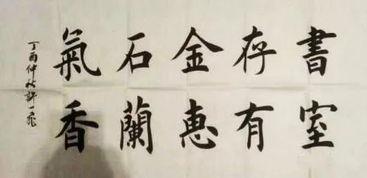 書室
存有
金惠
石蘭
氣香
丁酉仲秋許一飛